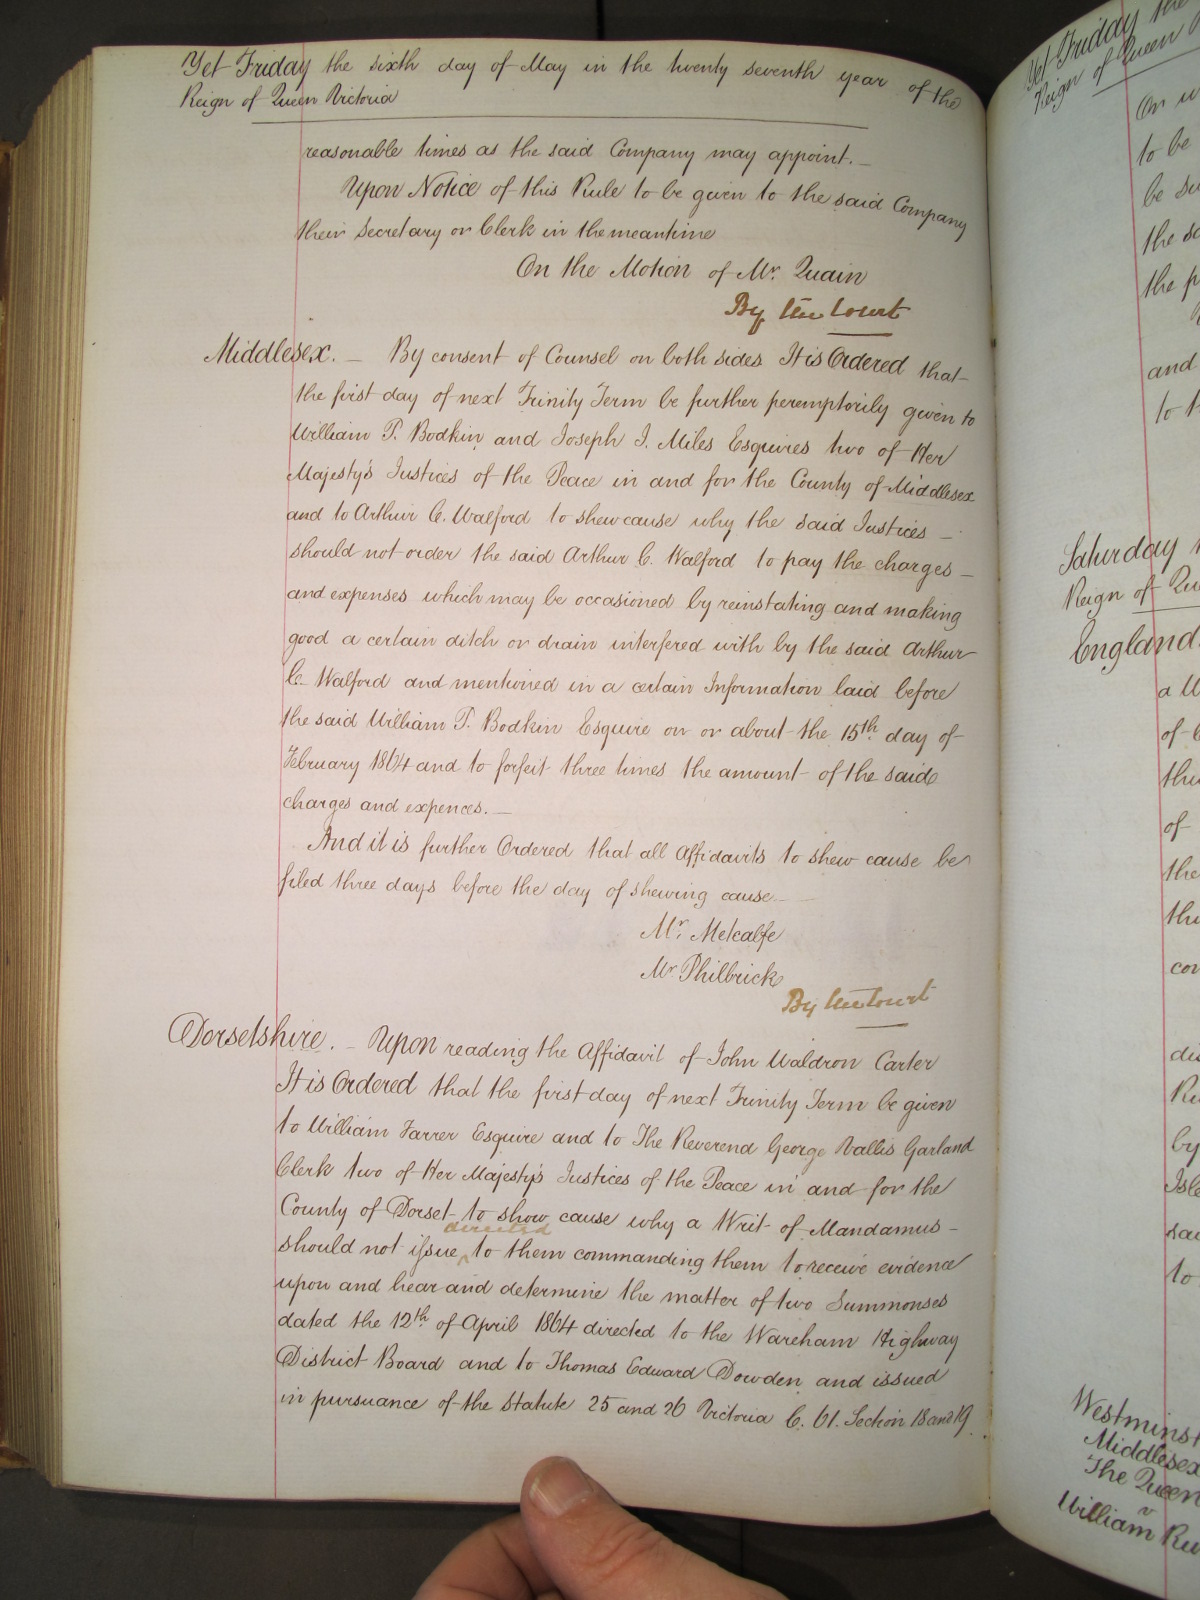 Yet Friday the sixth day of May in the twenty seventh year of the
Reign of Queen Victoria
reasonable times as the said Company may appoint. —
Upon Notice of this Rule to be given to the said Company
their Secretary or Clerk in the meantime
On the Motion of Mr. Quain
By the Court
Middlesex. — By consent of Counsel on both sides It is Ordered that
the first day of next Trinity Term be further peremptorily given to
William P. Bodkin and Joseph J. Miles Esquires two of Her
Majesty's Justices of the Peace in and for the County of Middlesex
and to Arthur C. Walford to shew cause why the said Justices —
should not order the said Arthur C. Walford to pay the charges —
and expenses which may be occasioned by reinstating and making
good a certain ditch or drain interfered with by the said Arthur
C. Walford and mentioned in a certain Information laid before
the said William P. Bodkin Esquire on or about the 15th day of
February 1864 and to forfeit three times the amount of the said
charges and expences. —
And it is further Ordered that all Affidavits to shew cause be
filed three days before the day of shewing cause —
Mr. Metcalfe
Mr Philbrick
By the Court
Dorsetshire. — Upon reading the Affidavit of John Waldron Carter
It is Ordered that the first day of next Trinity Term be given
to William Farrer Esquire and to The Reverend George Vallis Garland
Clerk two of Her Majesty's Justices of the Peace in and for the
County of Dorset to show cause why a Writ of Mandamus —
directed
should not issue ^ to them commanding them to receive evidence
upon and hear and determine the matter of two Summonses
dated the 12th of April 1864 directed to the Wareham Highway
District Board and to Thomas Edward Dowden and issued
in pursuance of the Statute 25 and 26 Victoria C. 61. Section 18 and 19.
Yet Friday the
Reign of Queen
to be
the
the p
and
Saturday
Reign of
England.
of
the
Westminst
Middlesex
The Queen
v
William